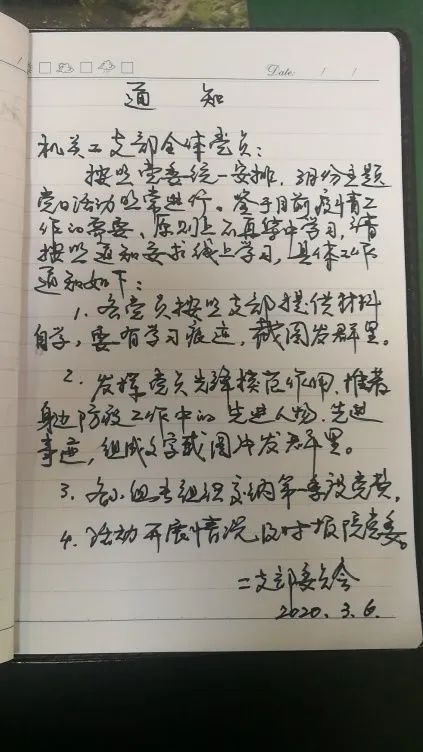 Date: / /
通 知
机关二支部全体党员:
按照党委统一安排,3月份主题
党日活动照常进行。鉴于目前疫情工
作的需要,原则上不再集中学习,请
按照通知要求线上学习,具体工作
通知如下:
1. 各党员按照支部提供材料
自学,要有学习痕迹,截图发群里。
2. 发挥党员先锋模范作用,推荐
身边防疫工作中的先进人物、先进
事迹,组成文字或图片发群里。
3. 各小组长组织交纳第一季度党费。
4. 活动开展情况及时报院党委。
二支部委员会
2020. 3. 6.